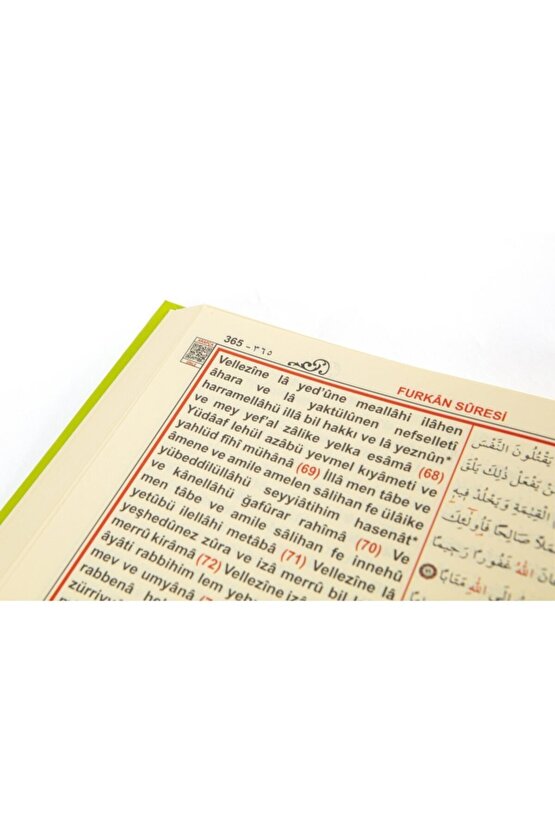 365 - ٣٦٥
FURKÂN SÛRESİ
Vellezîne lâ yed'ûne meallâhi ilâhen
âhara ve lâ yaktülûnen nefselletî
harramellâhü illâ bil hakkı ve lâ yeznûn*
ve mey yef'al zâlike yelka esâmâ (68)
Yüdâaf lehül azâbü yevmel kıyâmeti ve
yahlüd fîhî mühânâ (69) İllâ men tâbe ve
âmene ve amile amelen sâlihan fe ülâike
yübeddilüllâhü seyyiâtihim hasenât*
ve kânellâhü ğafûrar rahîmâ (70) Ve
men tâbe ve amile sâlihan fe innehû
yetûbü ilellâhi metâbâ (71) Vellezîne lâ
yeşhedûnez zûra ve izâ merrû bil
merrû kirâmâ (72) Vellezîne izâ
âyâti rabbihim lem yeh
mev ve umyânâ
rabbenâ
zürriyy
يَقْتُلُونَ النَّفْسَ
يَفْعَلْ ذٰلِكَ يَلْقَ
الْقِيٰمَةِ وَيَخْلُدْ فِيهِ
صَالِحًا فَاُو۬لٰٓئِكَ
اللّٰهُ غَفُورًا رَحِيمًا
اللّٰهِ مَتَابًا